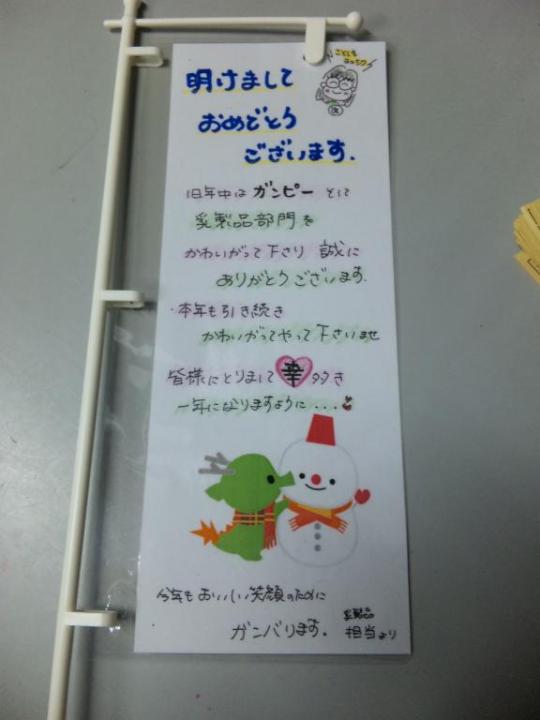 ことしも
よろしく
明けまして
おめでとう
ございます.
旧年中は ガンピー とに
乳製品部門を
かわいがって下さり 誠に
ありがとうございます.
・本年も引き続き
かわいがってやって下さいませ
皆様にとりまして 幸 多き
一年になりますように...
今年もおいしい笑顔のために
ガンバリます.
乳製品
担当より